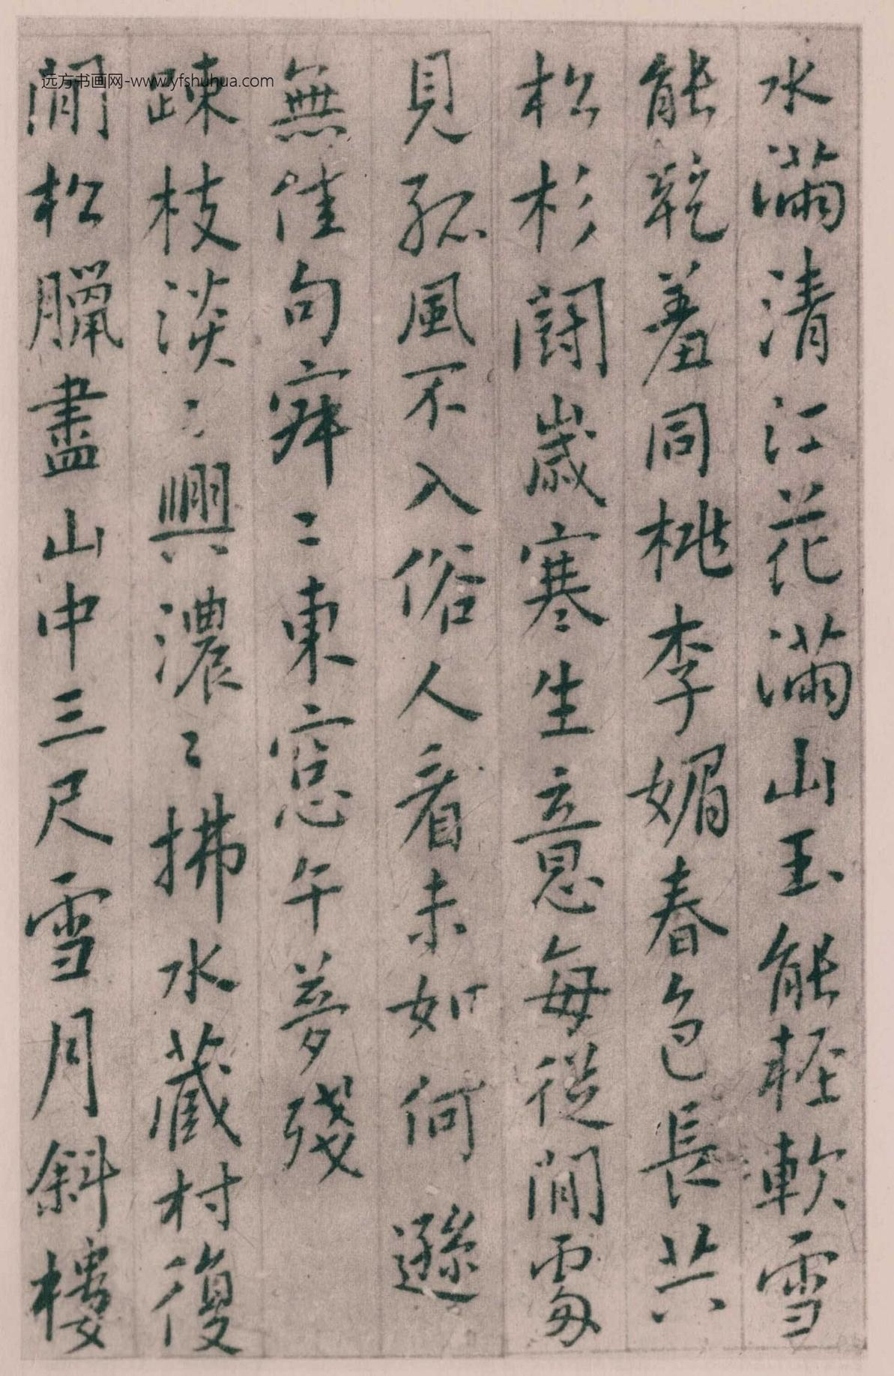 水滿清江花滿山玉能輕軟雪
能乾羞同桃李媚春色長共
松杉鬪歲寒生意每從閒處
見孤風不入俗人看未如何遜
無佳句寐〻東窓午夢殘
踈枝淡〻興濃〻拂水藏村復
間松臘盡山中三尺雪月斜樓
远方书画网-www.yfshuhua.com